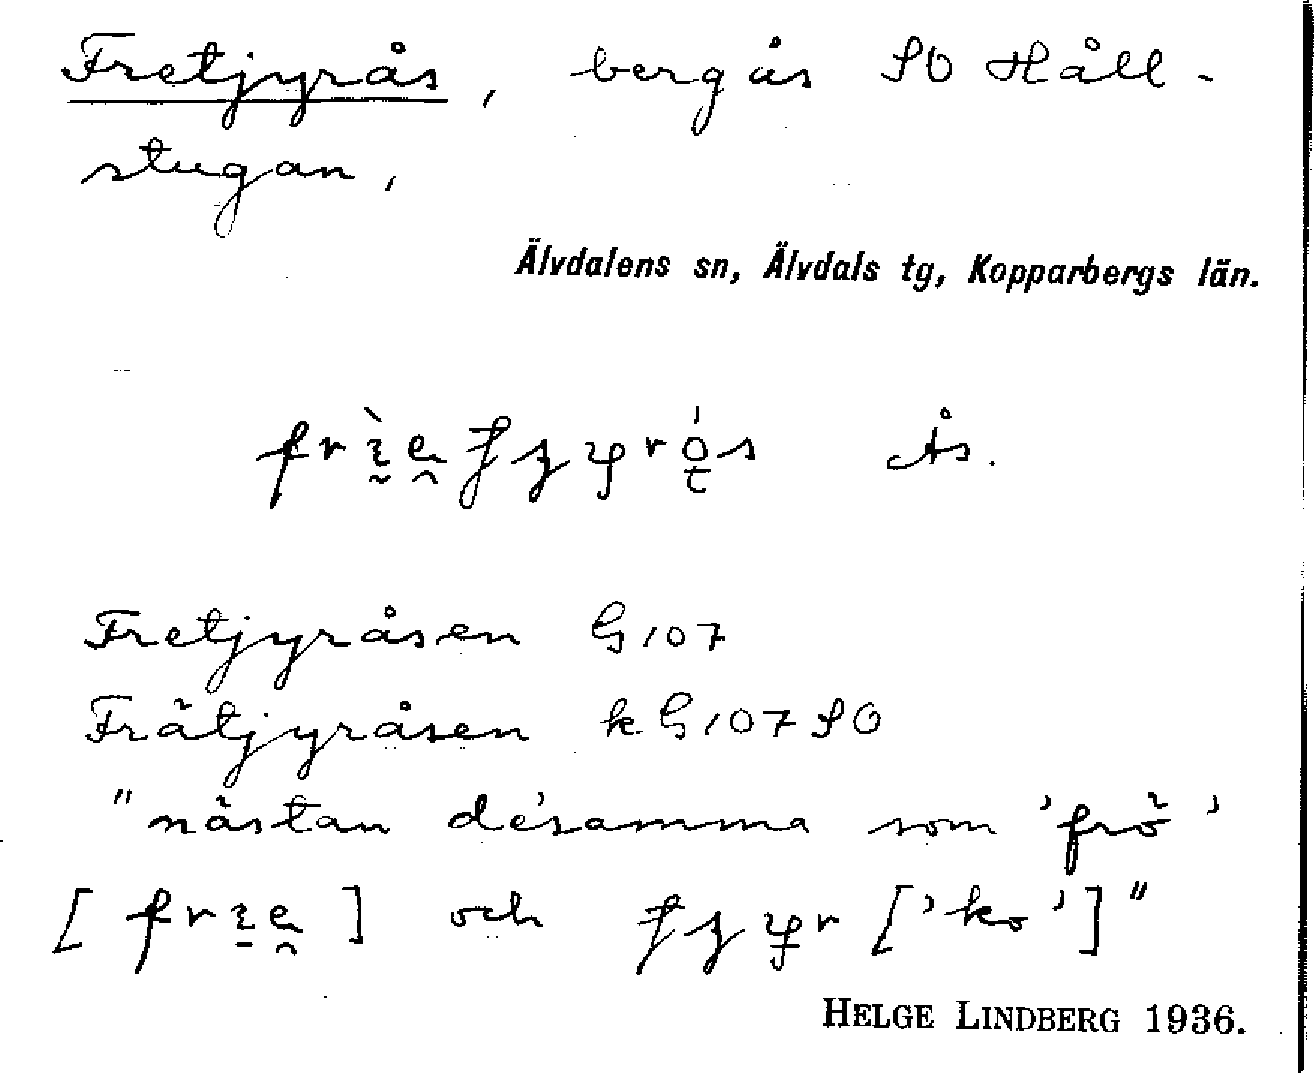 Fretjyrås, bergås SO Håll-
stugan,
Älvdalens sn, Älvdals tg, Kopparbergs län.
Ås.
Fretjyråsen G107
Frätjyråsen k G107 SO
"nästan désamma som 'frö'
[ ] och ['ko']"
HELGE LINDBERG 1936.